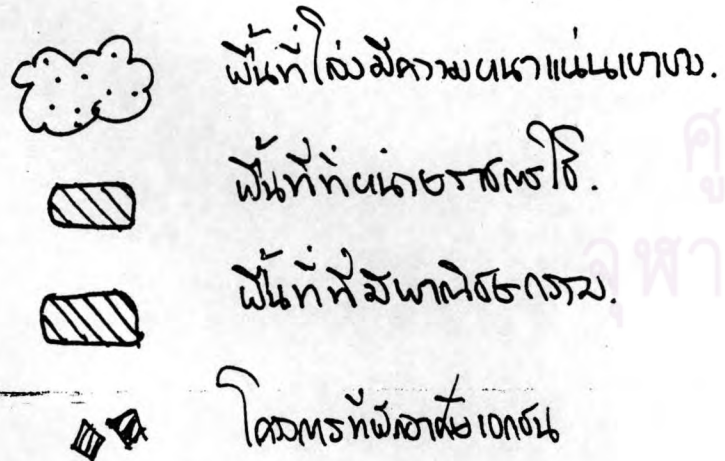 พื้นที่โล่งมีความหนาแน่นเบาบาง.
พื้นที่ที่หน่วยราชการใช้.
พื้นที่ที่มีพาณิชยกรรม.
โครงการที่พักอาศัยเอกชน
ศู
จุฬา